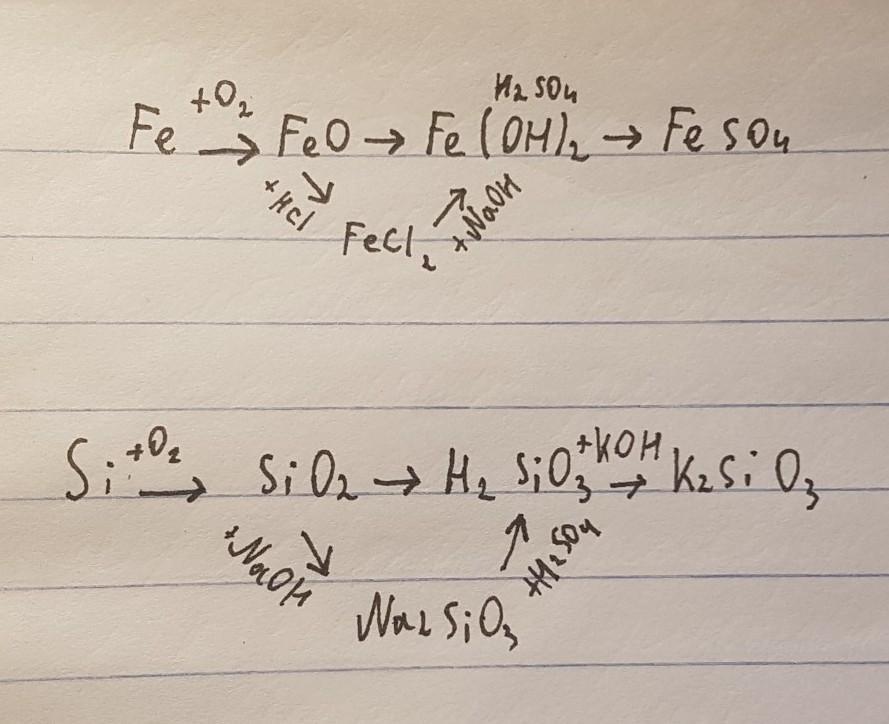 Fe +O₂ → FeO → Fe(OH)₂ H₂SO₄ → FeSO₄
+HCl ↘ FeCl₂ ↗ +NaOH
Si +O₂ → SiO₂ → H₂SiO₃ +KOH → K₂SiO₃
+NaOH ↘ Na₂SiO₃ ↗ +H₂SO₄